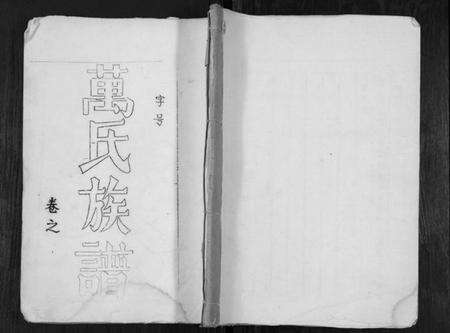 字号
萬氏族譜
卷之